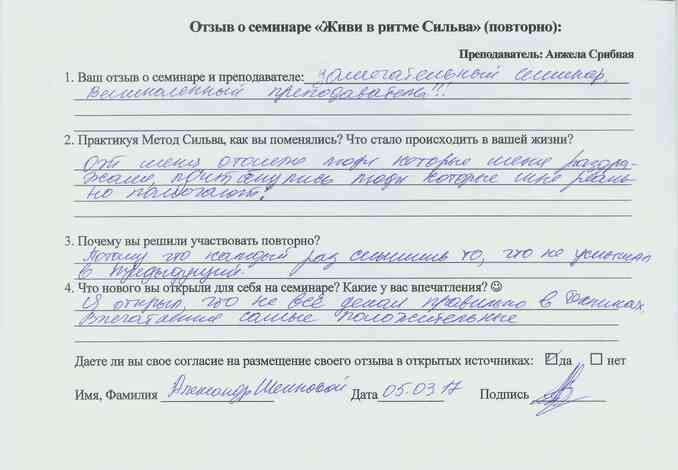 Отзыв о семинаре «Живи в ритме Сильва» (повторно):
Преподаватель: Анжела Срибная
1. Ваш отзыв о семинаре и преподавателе: замечательный семинар,
Великолепный преподаватель!!!
2. Практикуя Метод Сильва, как вы поменялись? Что стало происходить в вашей жизни?
От меня отошли люди которые меня раздра-
жали, притянулись люди которые мне реаль-
но помогают!
3. Почему вы решили участвовать повторно?
Потому что каждый раз слышишь то, что не услышал
в предыдущий.
4. Что нового вы открыли для себя на семинаре? Какие у вас впечатления? ☺
Я открыл, что не всё делал правильно в техниках.
Впечатления самые положительные
Даете ли вы свое согласие на размещение своего отзыва в открытых источниках: ☑ да ☐ нет
Имя, Фамилия Александр Дата 05.03.17 Подпись